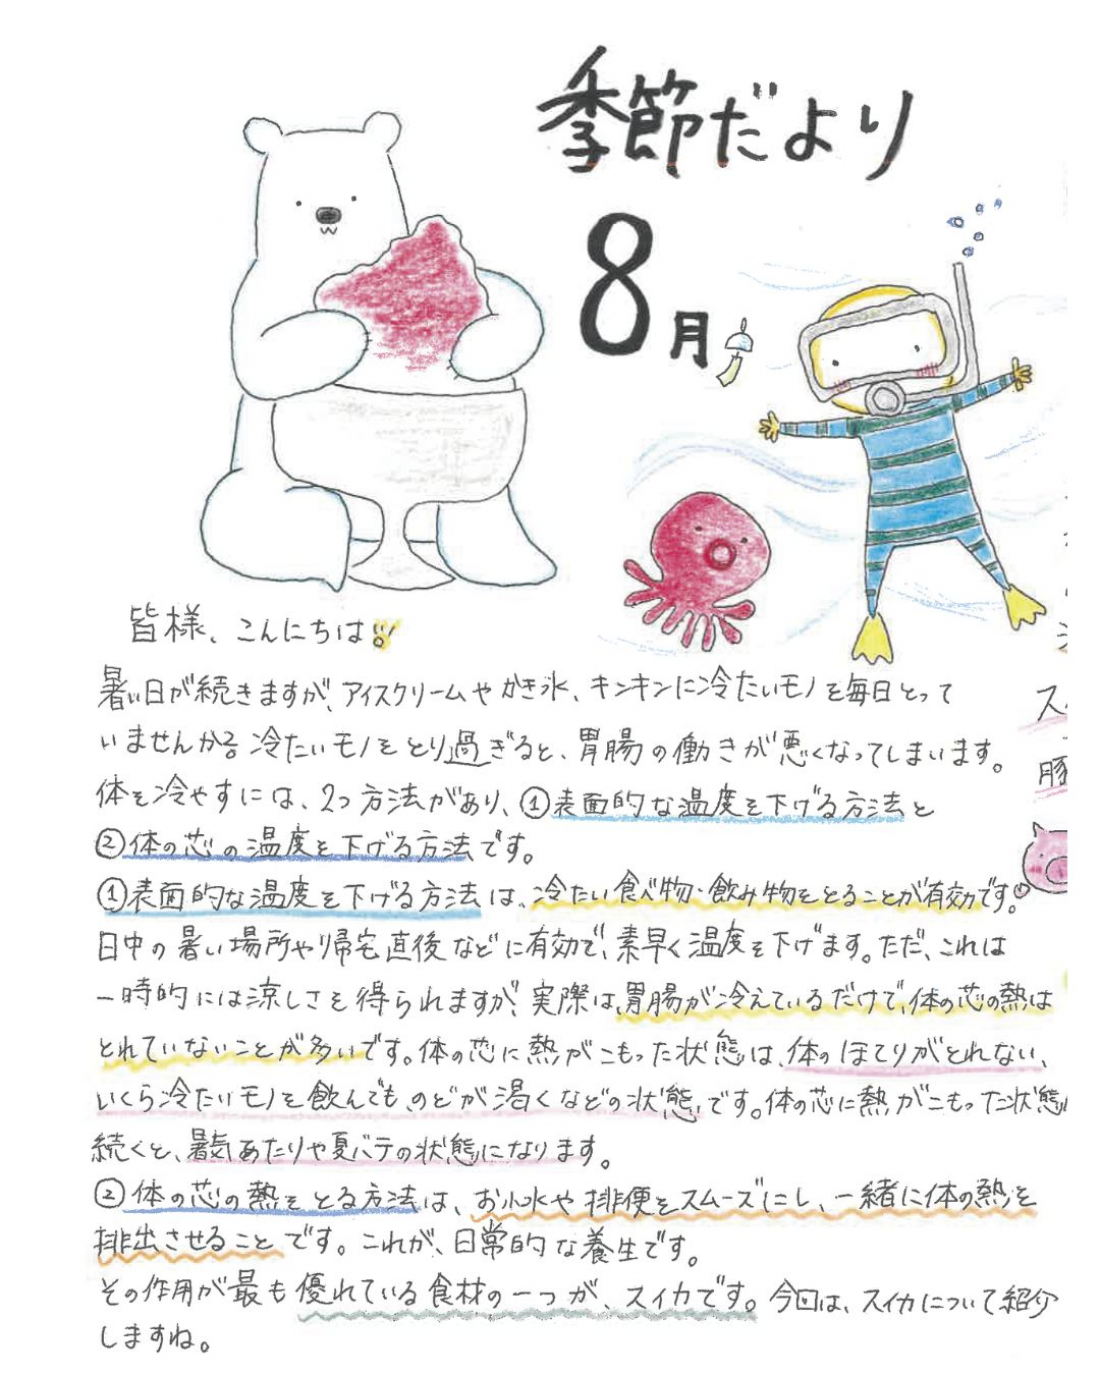 季節だより
8月
皆様、こんにちは!!
暑い日が続きますが、アイスクリームやかき氷、キンキンに冷たいモノを毎日とって
いませんか?冷たいモノをとり過ぎると、胃腸の働きが悪くなってしまいます。
体を冷やすには、2つ方法があり、①表面的な温度を下げる方法と
②体の芯の温度を下げる方法です。
①表面的な温度を下げる方法は、冷たい食べ物・飲み物をとることが有効です。
日中の暑い場所や帰宅直後などに有効で、素早く温度を下げます。ただ、これは
一時的には涼しさを得られますが、実際は、胃腸が冷えているだけで、体の芯の熱は
とれていないことが多いです。体の芯に熱がこもった状態は、体のほてりがとれない、
いくら冷たいモノを飲んでも、のどが渇くなどの状態です。体の芯に熱がこもった状態
続くと、暑気あたりや夏バテの状態になります。
②体の芯の熱をとる方法は、お小水や排便をスムーズにし、一緒に体の熱を
排出させることです。これが、日常的な養生です。
その作用が最も優れている食材の一つが、スイカです。今回は、スイカについて紹介
しますね。
ス
豚